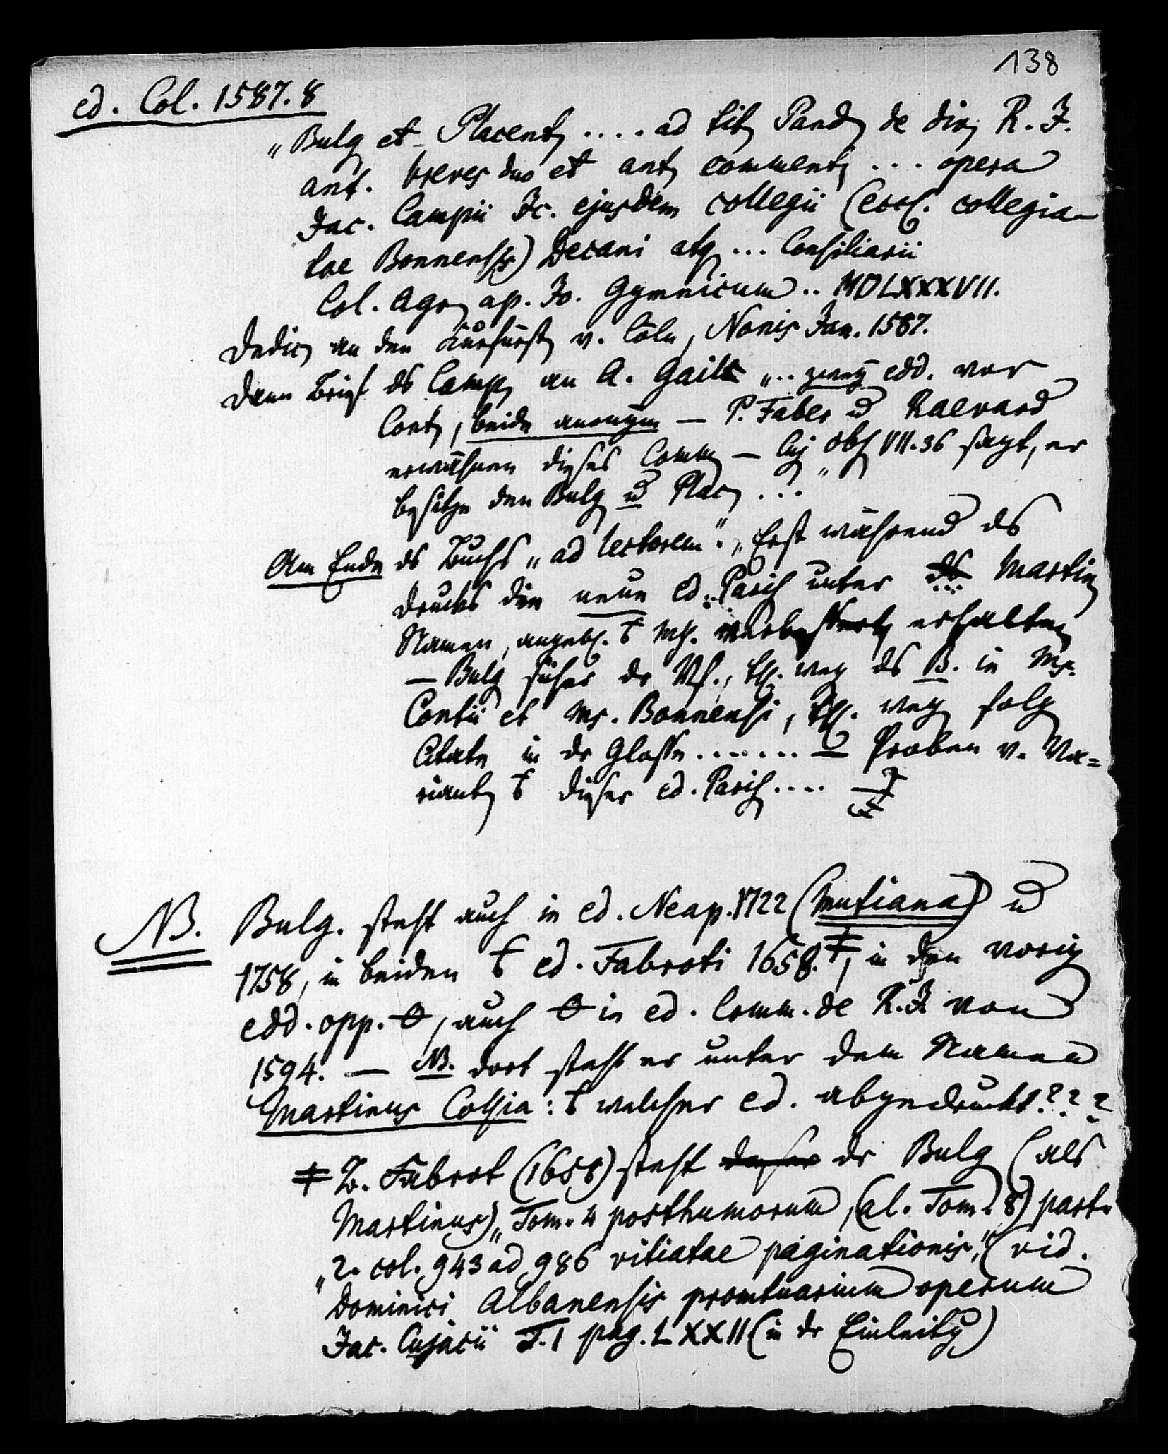 138
ed. Col. 1587. 8
„Bulg et Placent .... ad tit Pand de div R. J.
ant. breves duo et ant comment ... opera
Jac. Campii Jc. ejusdem collegii (eccl. collegia-
tae Bonnensis) Decani atq ... Consiliarii
Col. Agr ap. Jo. Gymnicum .. MDLXXXVII.
Dedic an den Kurfürst v. Cöln, Nonis Jan. 1587.
Dann Brief ds Camp an A. Gail „.. zwey edd. vor
Cont, beide anonym — P. Faber u Raevard
erwähnen dieses Comm — Cuj obs VII. 36 sagt, er
besitze den Bulg u Plac ...
Am Ende ds Buchs „ad lectorem": „Erst während ds
Drucks die neue ed. Paris unter ds Martin
Namen, angebl. Ms. verbessert erhalten
— Bulg sicher der Vf., weg ds B. in Ms.
Contii et Ms. Bonnensi, weg folg
Citate in dr Glosse ....... — Proben v. Va=
riant dieser ed. Paris ....
NB. Bulg. steht auch in ed. Neap. 1722 (Mutiana) u
1758, in beiden ed. Fabroti 1658.‡, in den vorig
edd. opp. θ, auch θ in ed. Comm. de R. J. von
1594. — NB. dort steht er unter dem Namen
Martinus Cossia: welcher ed. abgedruckt???
‡ B. Fabrot (1658) steht dieser dr Bulg (als
Martinus) „Tom. 4 posthumorum, (al. Tom. 8) part.
„2. col. 943 ad 986 vitiatae paginationis," (vid.
Dominici Albanensis promtuarium operum
Jac. Cujacii T. I pag. LXXII (in dr Einleitg)